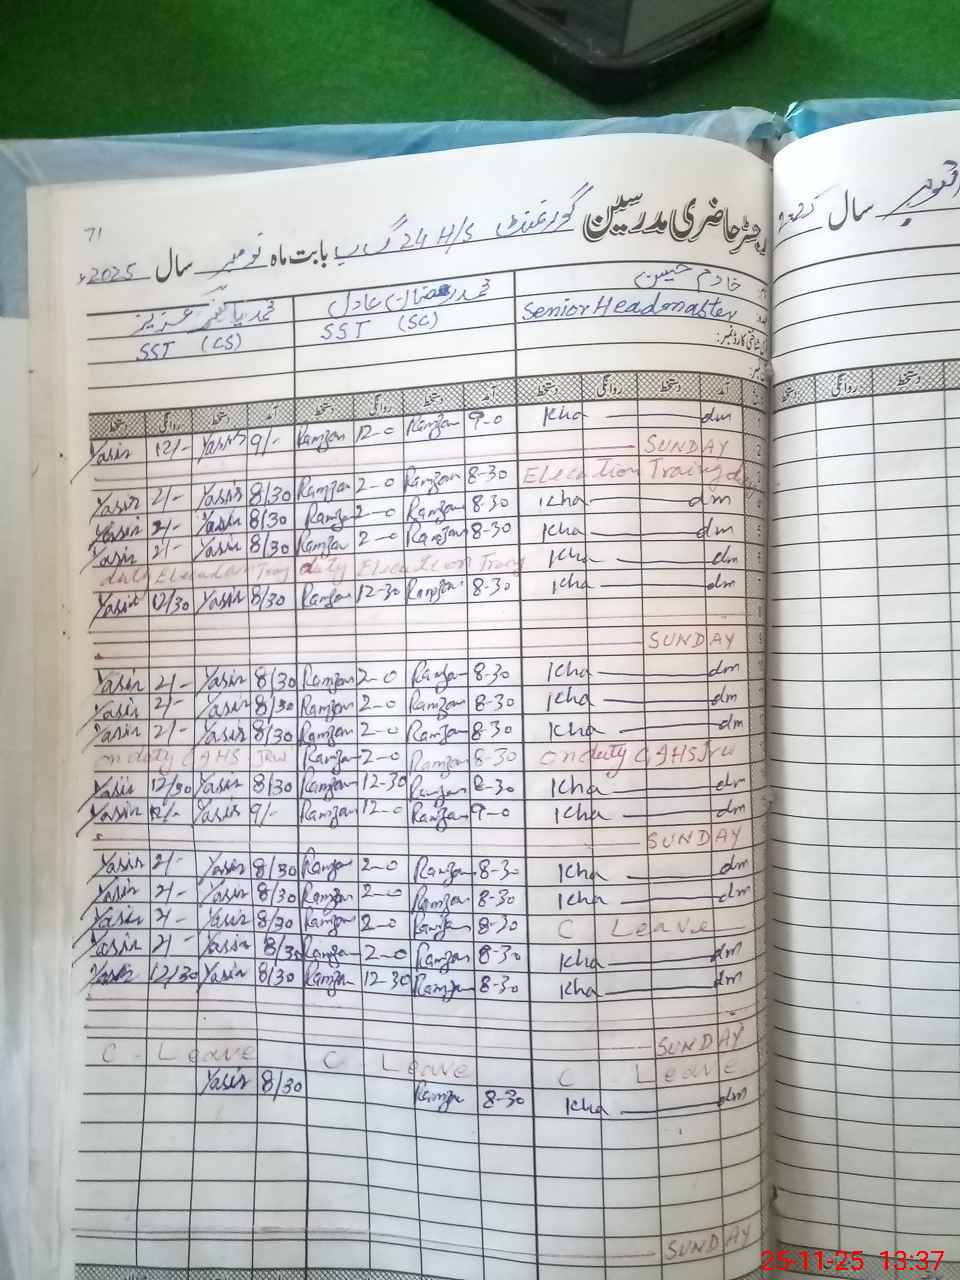 71
رجسٹر حاضری مدرسین گورنمنٹ H/S 24 گ ب بابت ماہ نومبر سال 2025ء
خادم حسین محمد رمضان عادل محمد یاسر عزیز
Senior Headmaster SST (SC) SST (CS)
آمد دستخط روانگی دستخط آمد دستخط روانگی دستخط آمد دستخط روانگی دستخط
Yasir 12/- Yasir 9/- Ramzan 12-0 Ramzan 9-0 Kha dm
SUNDAY 2
Yasir 2/- Yasir 8/30 Ramzan 2-0 Ramzan 8-30 Elecution Trainy duty
Yasir 2/- Yasir 8/30 Ramzan 2-0 Ramzan 8-30 Kha dm
Yasir 2/- Yasir 8/30 Ramzan 2-0 Ramzan 8-30 Kha dm
duty Elecution Trany duty Elecution Trany Kha dm
Yasir 12/30 Yasir 8/30 Ramzan 12-30 Ramzan 8-30 Kha dm
SUNDAY 9
Yasir 2/- Yasir 8/30 Ramzan 2-0 Ramzan 8-30 Kha dm
Yasir 2/- Yasir 8/30 Ramzan 2-0 Ramzan 8-30 Kha dm
Yasir 2/- Yasir 8/30 Ramzan 2-0 Ramzan 8-30 Kha dm
on duty GHS JRW Ramzan 2-0 Ramzan 8-30 on duty GHS Jrw
Yasir 12/30 Yasir 8/30 Ramzan 12-30 Ramzan 8-30 Kha dm
Yasir 12/- Yasir 9/- Ramzan 12-0 Ramzan 9-0 Kha dm
SUNDAY
Yasir 2/- Yasir 8/30 Ramzan 2-0 Ramzan 8-30 Kha dm
Yasir 2/- Yasir 8/30 Ramzan 2-0 Ramzan 8-30 Kha dm
Yasir 2/- Yasir 8/30 Ramzan 2-0 Ramzan 8-30 C Leave
Yasir 2/- Yasir 8/30 Ramzan 2-0 Ramzan 8-30 Kha dm
Yasir 12/30 Yasir 8/30 Ramzan 12-30 Ramzan 8-30 Kha dm
SUNDAY
C - Leave C - Leave C - Leave
Yasir 8/30 Ramzan 8-30 Kha dm
SUNDAY
سال
روانگی دستخط
25-11-25 13:37